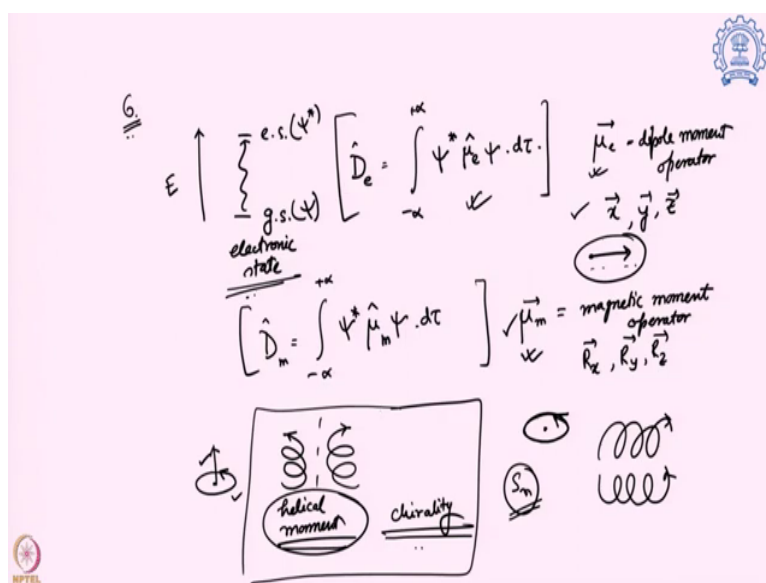 6.
E
e.s.(Ψ*)
g.s.(Ψ)
electronic
state
[D̂e = ∫ Ψ* μ̂e Ψ . dτ.]
+α
-α
μ⃗e - dipole moment
operator
x⃗, y⃗, z⃗
[D̂m = ∫ Ψ* μ̂m Ψ . dτ]
+α
-α
μ⃗m = magnetic moment
operator
R⃗x, R⃗y, R⃗z
helical
moment
chirality
Sn
NPTEL